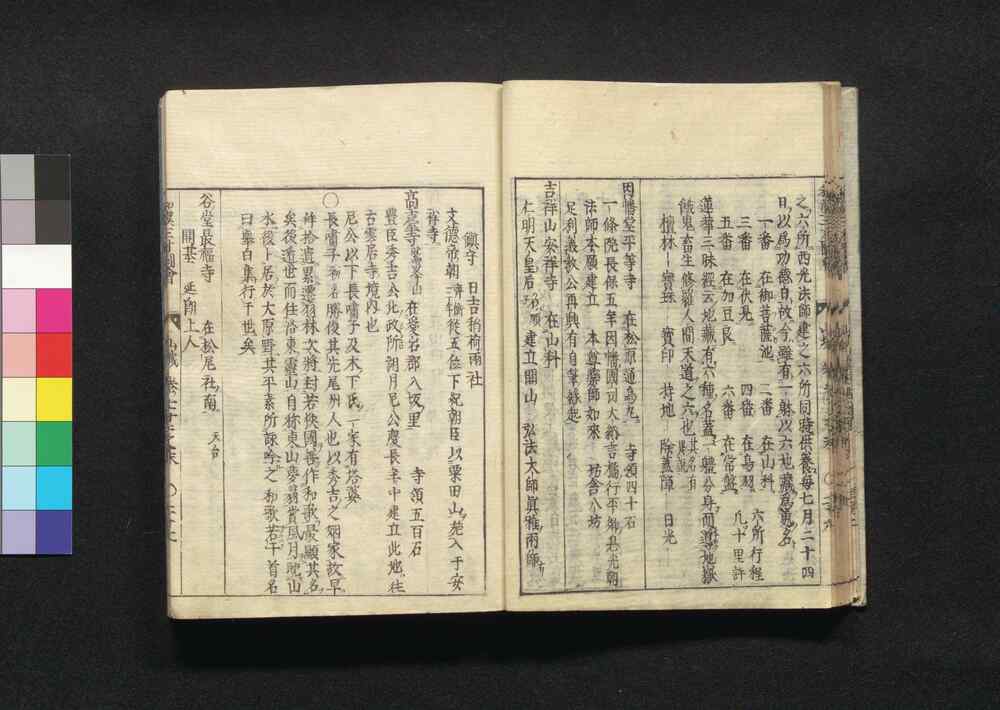 之六所西光法師建之六所同時供養毎七月二十四
日以爲功德日故今雖有一躰以六地藏爲寬名
一番 在御菩薩池 二番 在山科 六所行程
三番 在伏見 四番 在鳥羽 凡十里許
五番 在加豆良 六番 在常盤
蓮華三昧經云地藏有六種名蓋一體分身而遊地獄
餓鬼畜生修羅人間天道之六也 其名有異說
檀林 寶珠 寶印 持地 除蓋障 日光
因幡堂平等寺 在松原通烏丸 寺領四十石
一條院長保五年因幡國司大納言橘行平卿
法師本願建立 本尊藥師如來 坊舍八坊
足利義教公再興有自筆緣起
吉祥山安祥寺 在山科
仁明天皇后 建立開山 弘法大師眞雅兩師
鎭守 日吉稻荷兩社
文德帝朝 從五位下紀朝臣以粟田山 入于安
祥寺
高臺寺 鷲峯山 在愛宕郡八坂里 寺領五百石
豐臣秀吉公北政所湖月尼公慶長年中建立此地往
古雲居寺境内也
尼公以下長嘯子及木下氏一家有塔墓
〇長嘯子 勝俊其先尾州人也以秀吉之姻家故早
拜拾遺累遷羽林次將封若狹國善作和歌最顯其名
矣後遁世而住洛東靈山自稱東山夢翁賞風月 山
水後卜居於大原野其平素所詠吟之和歌若干首名
曰擧白集行于世矣
谷堂最福寺 在松尾社南 天台
開基 延朗上人